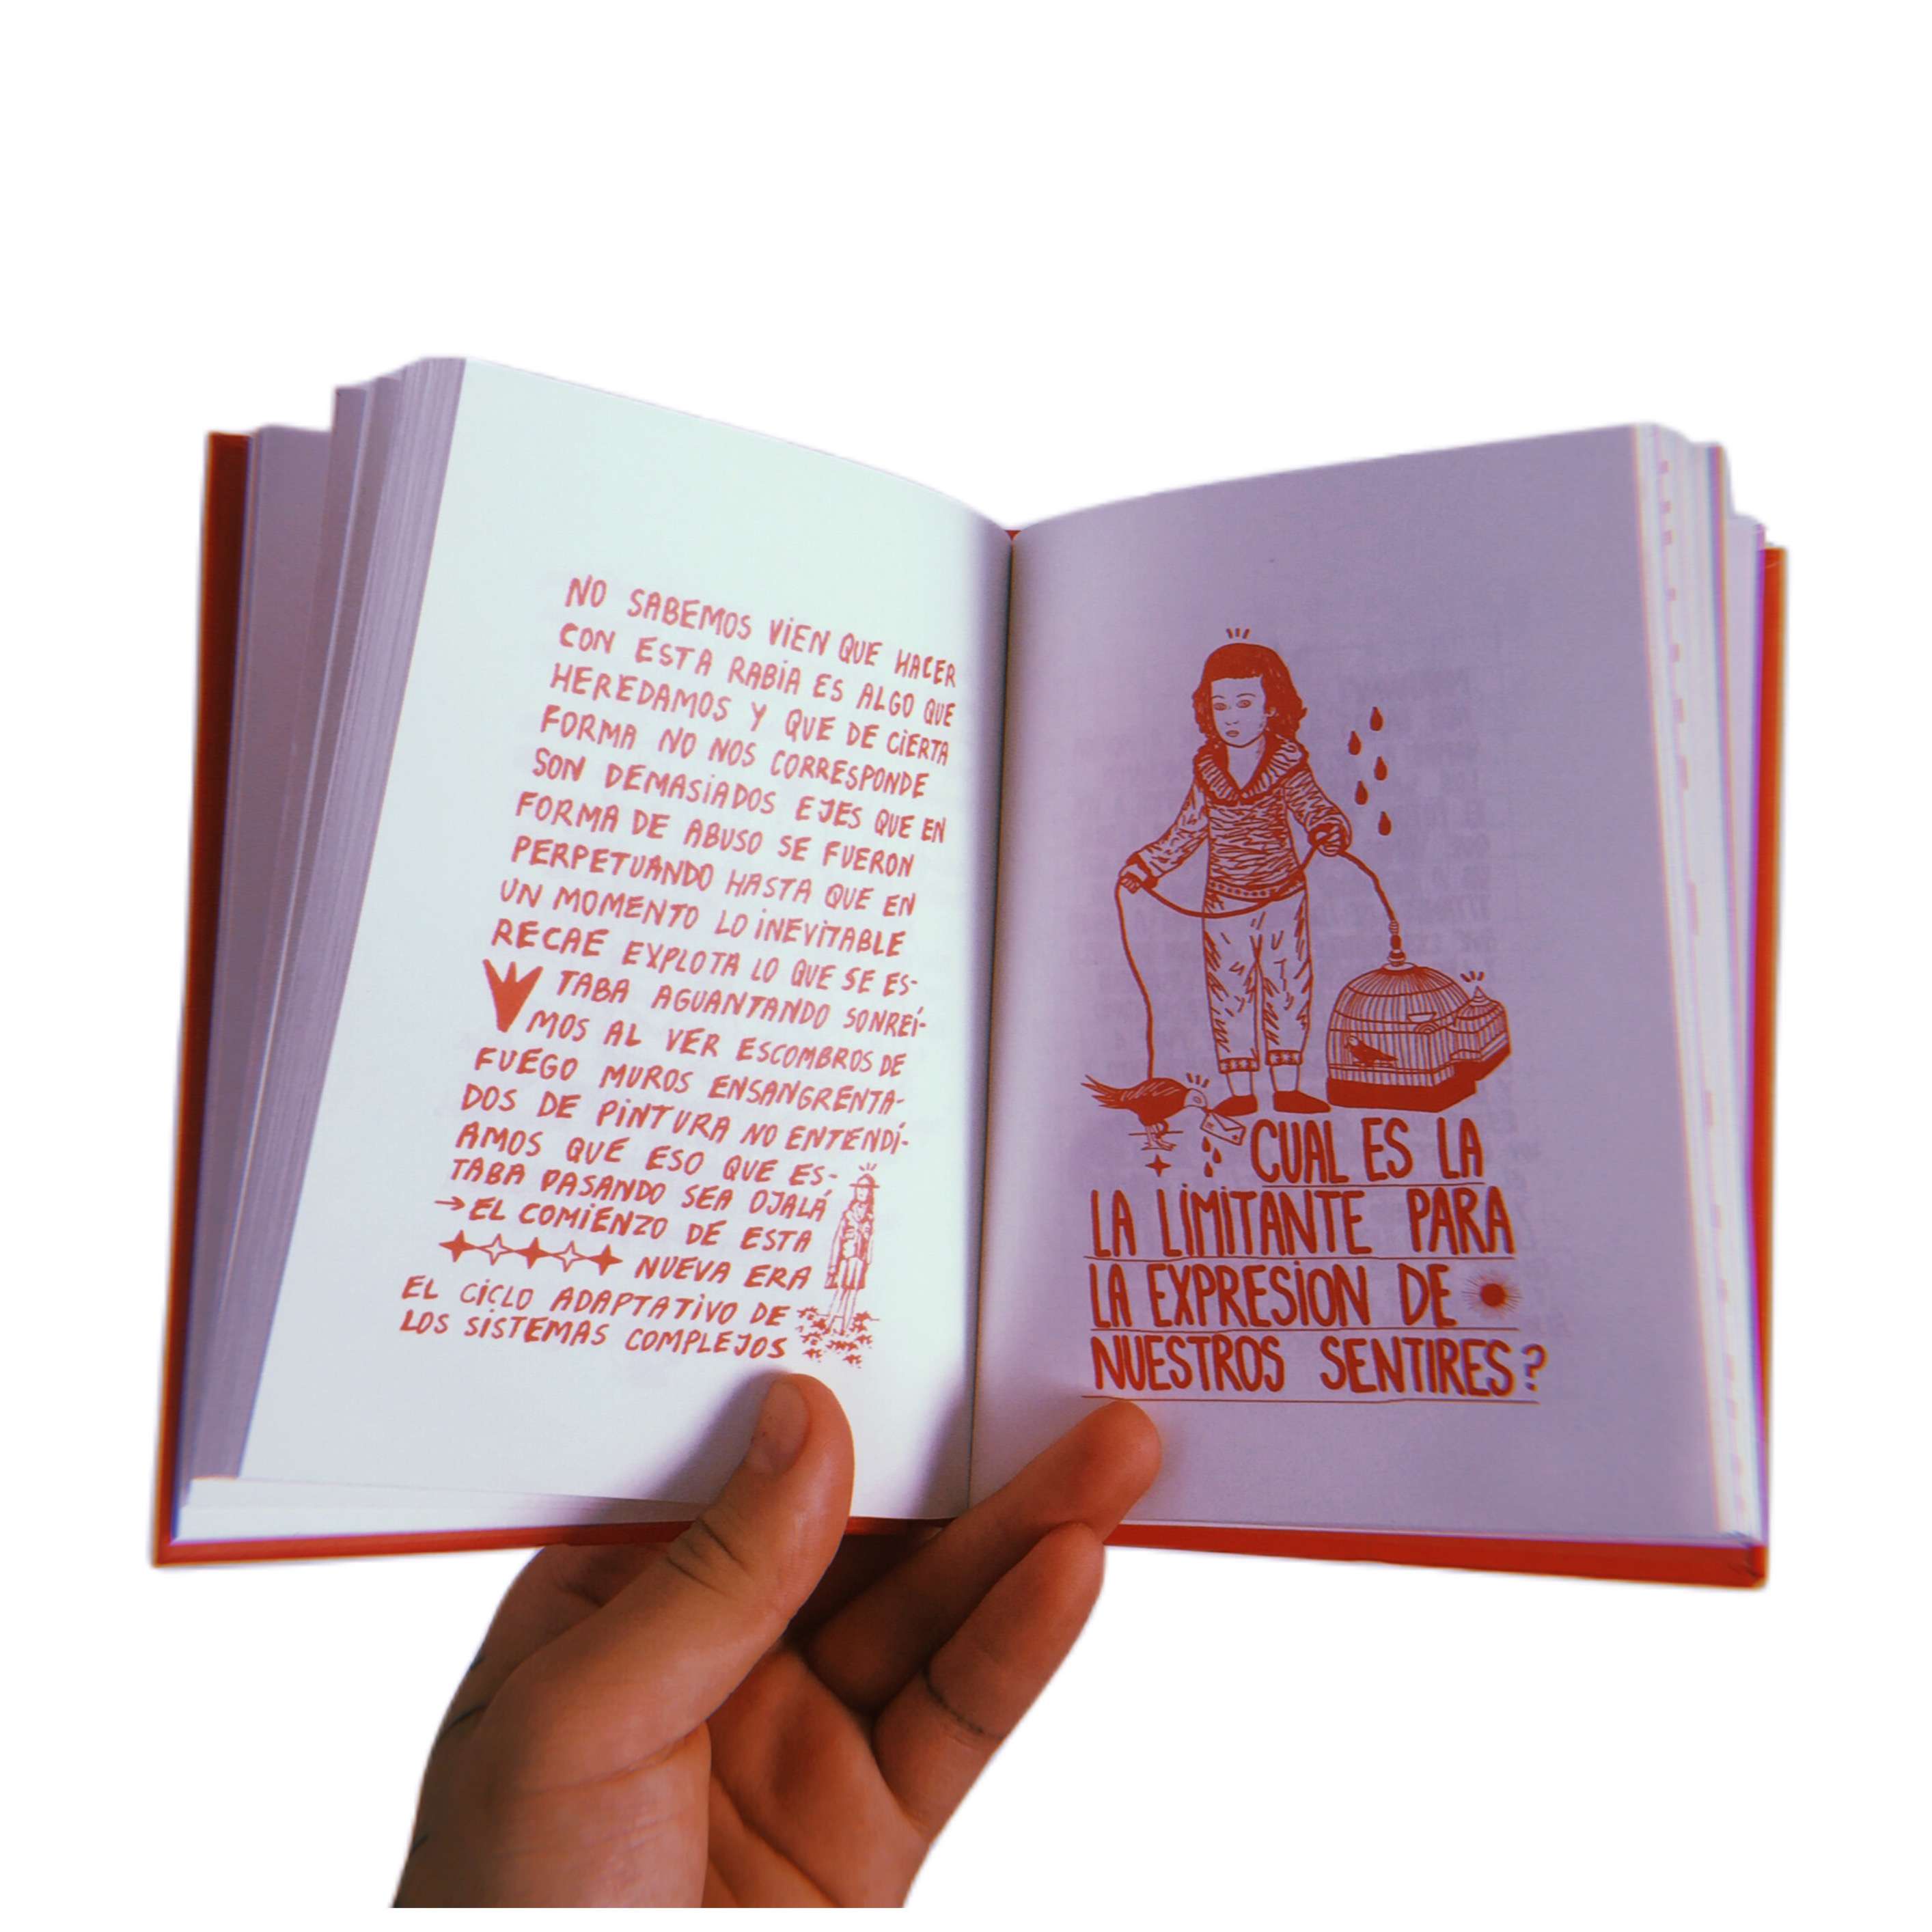 NO SABEMOS VIEN QUE HACER
CON ESTA RABIA ES ALGO QUE
HEREDAMOS Y QUE DE CIERTA
FORMA NO NOS CORRESPONDE
SON DEMASIADOS EJES QUE EN
FORMA DE ABUSO SE FUERON
PERPETUANDO HASTA QUE EN
UN MOMENTO LO INEVITABLE
RECAE EXPLOTA LO QUE SE ES-
TABA AGUANTANDO SONREÍ-
MOS AL VER ESCOMBROS DE
FUEGO MUROS ENSANGRENTA-
DOS DE PINTURA NO ENTENDÍ-
AMOS QUE ESO QUE ES-
TABA PASANDO SEA OJALÁ
→ EL COMIENZO DE ESTA
NUEVA ERA
EL CICLO ADAPTATIVO DE
LOS SISTEMAS COMPLEJOS
CUAL ES LA
LA LIMITANTE PARA
LA EXPRESION DE
NUESTROS SENTIRES?